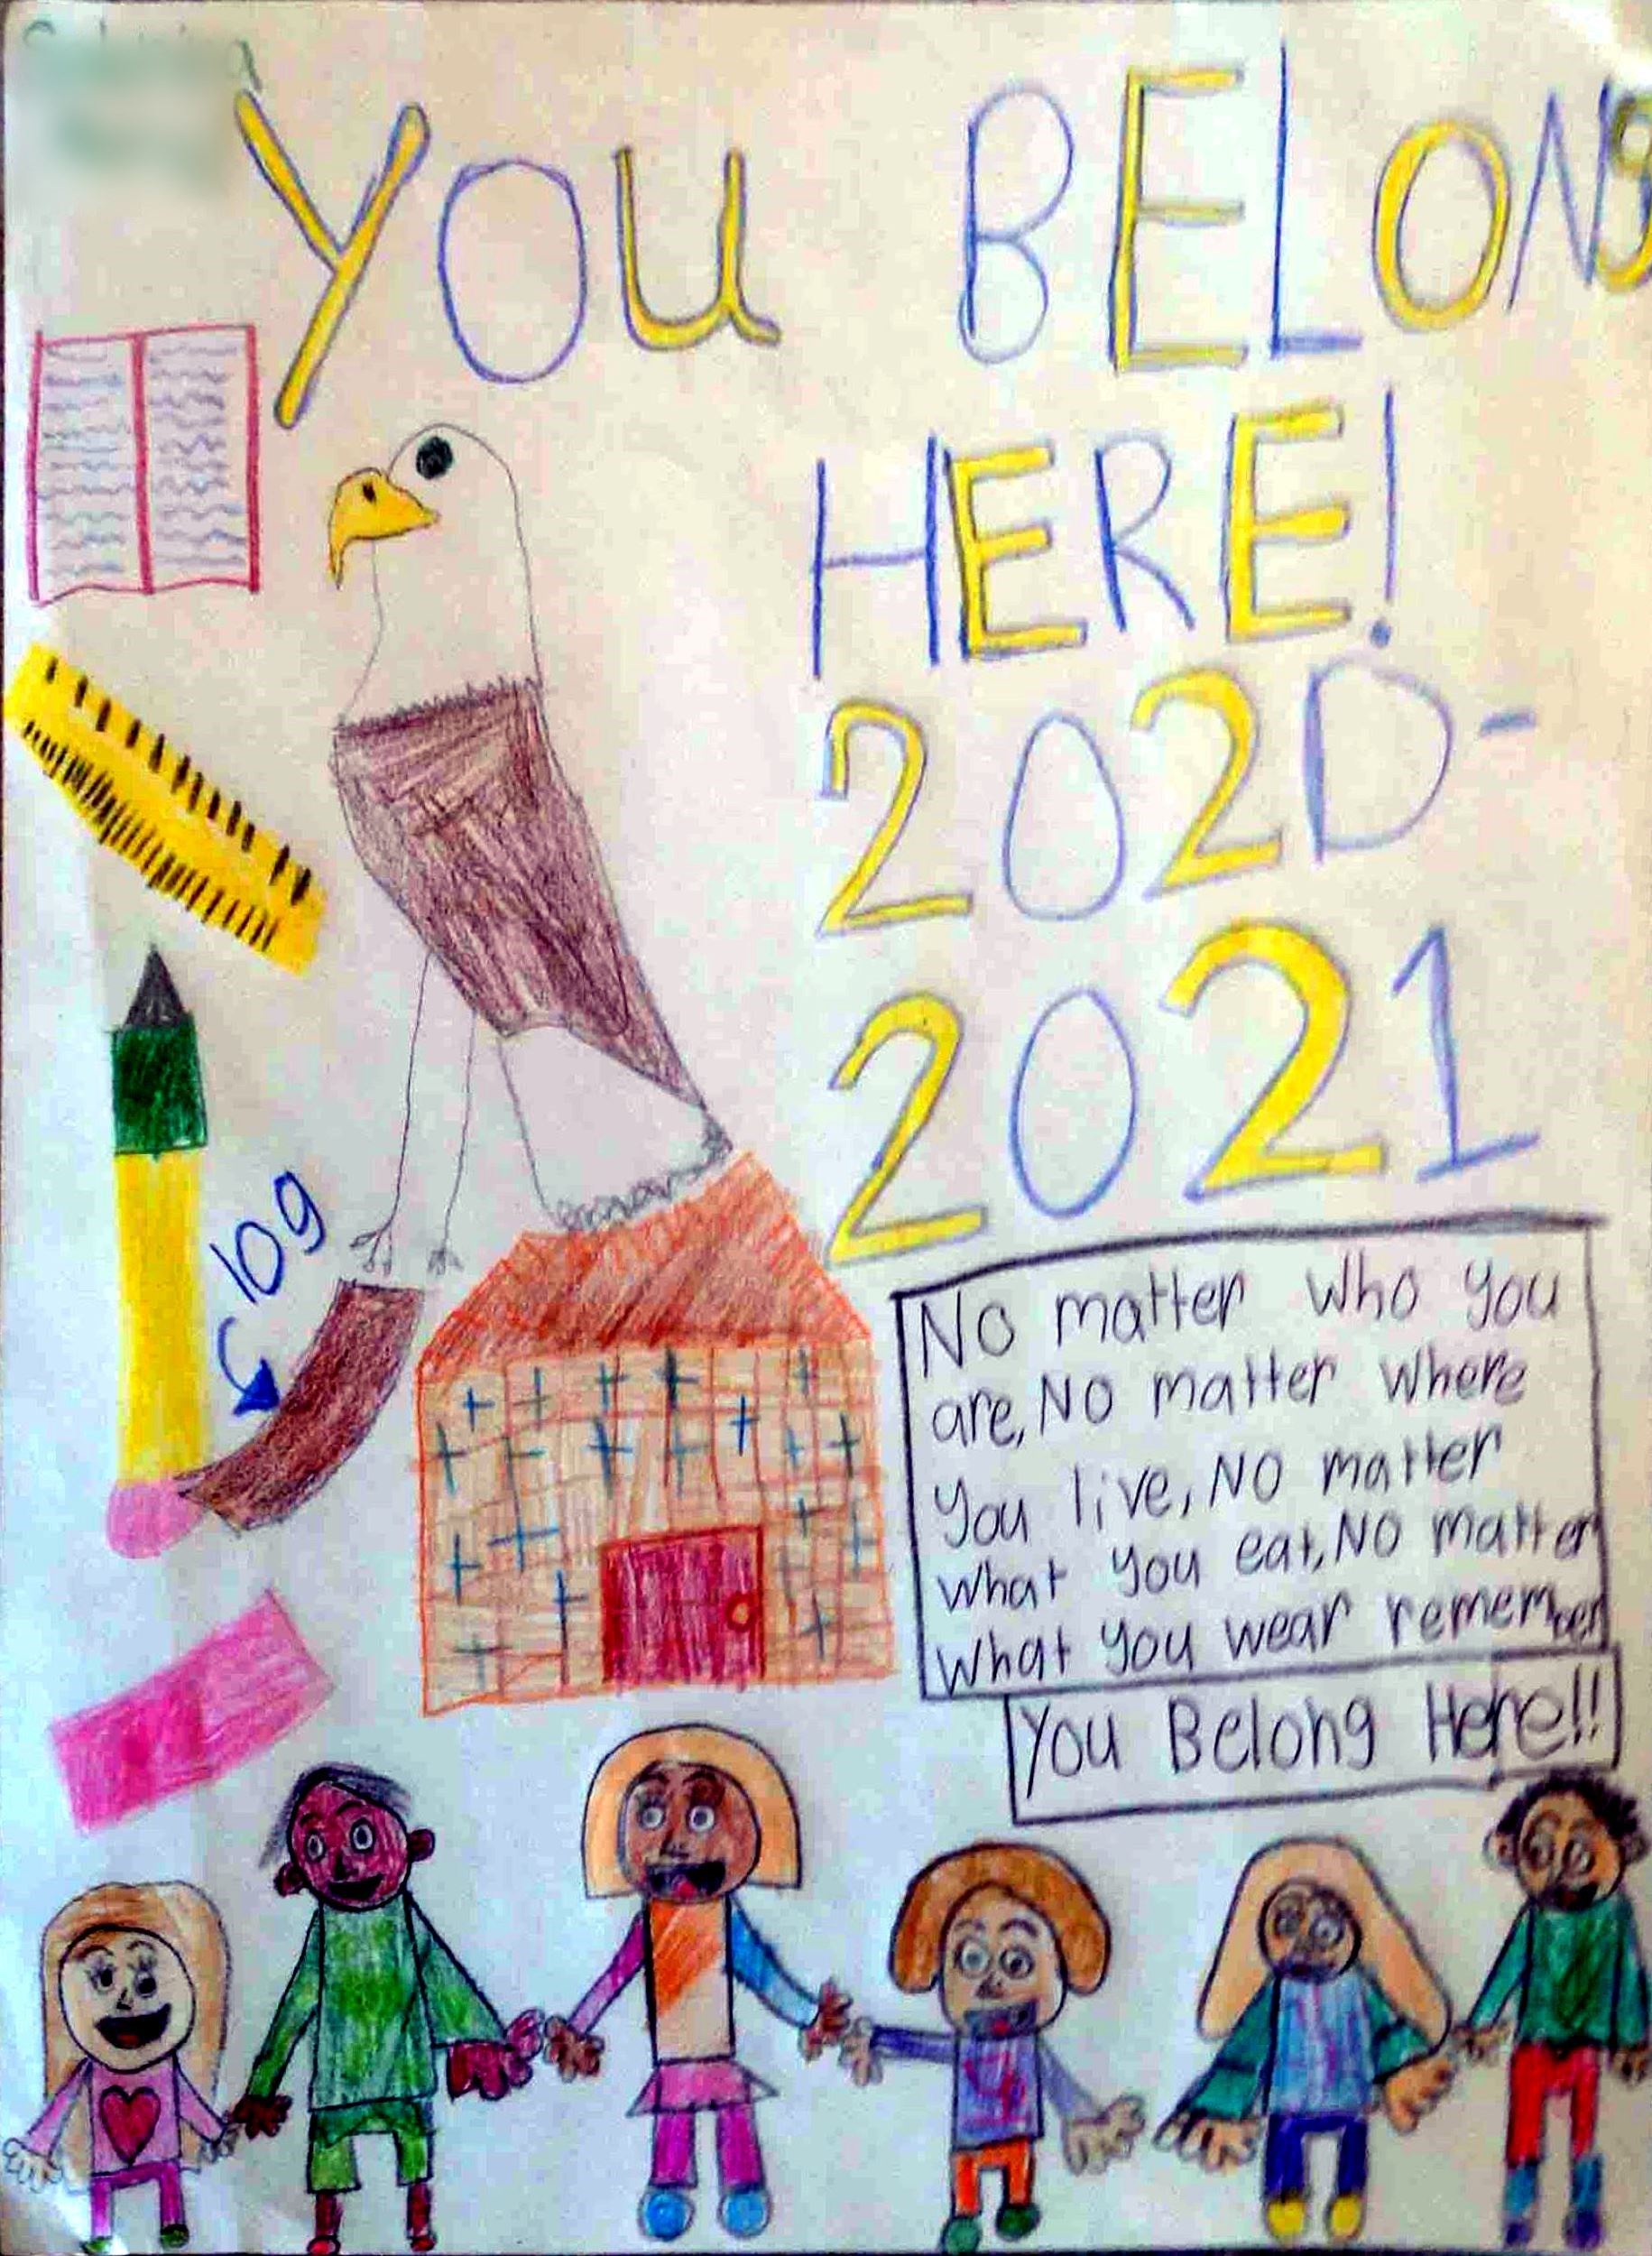 YOU BELONG
HERE!
2020-
2021
log
No matter who you
are, No matter where
you live, No matter
what you eat, No matter
what you wear remember
You Belong Here!!